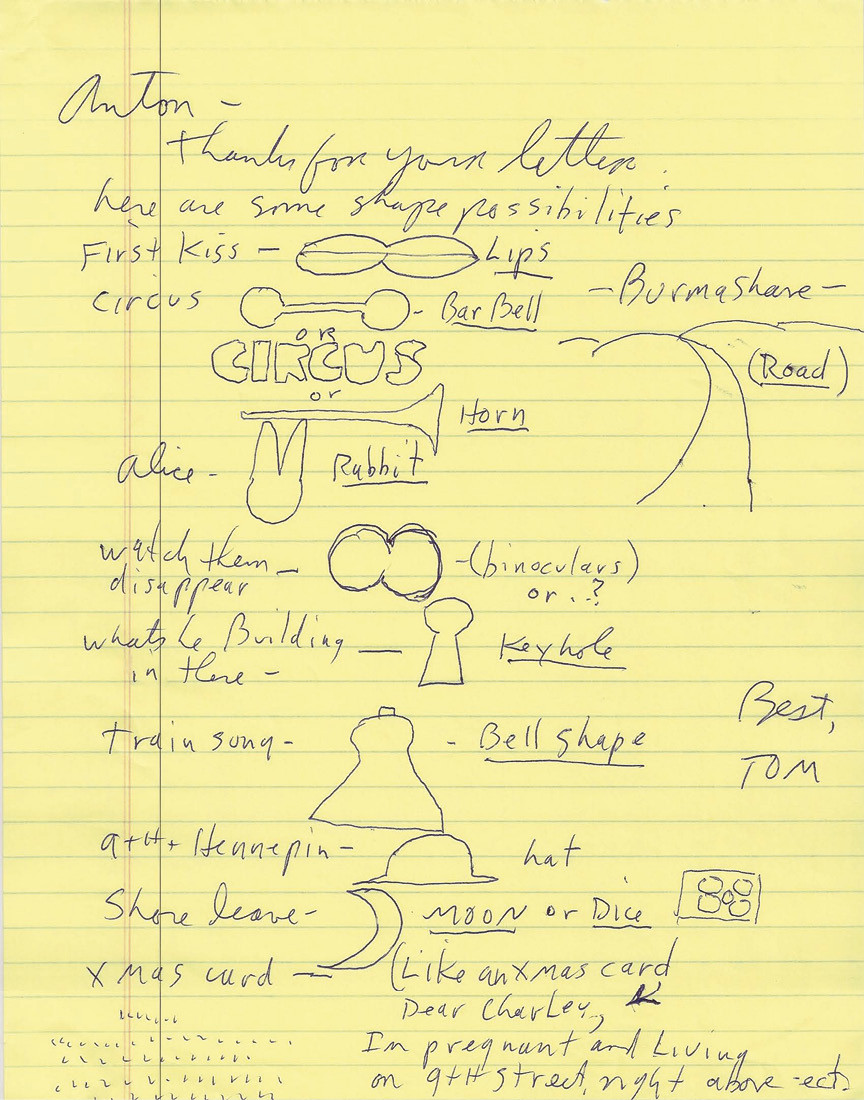 Anton -
Thanks for your letter.
here are some shape possibilities
First Kiss - Lips
circus - Bar Bell
or
CIRCUS
or
Horn
- Burmashave -
(Road)
Alice - Rabbit
watch them
disappear - (binoculars)
or..?
whats he Building
in there - Keyhole
train song - - Bell shape
9th + Hennepin - hat
Shore leave - MOON or Dice
Xmas card - (Like an xmas card
Dear Charley,
Im pregnant and Living
on 9th street, right above -ect.
Best,
TOM